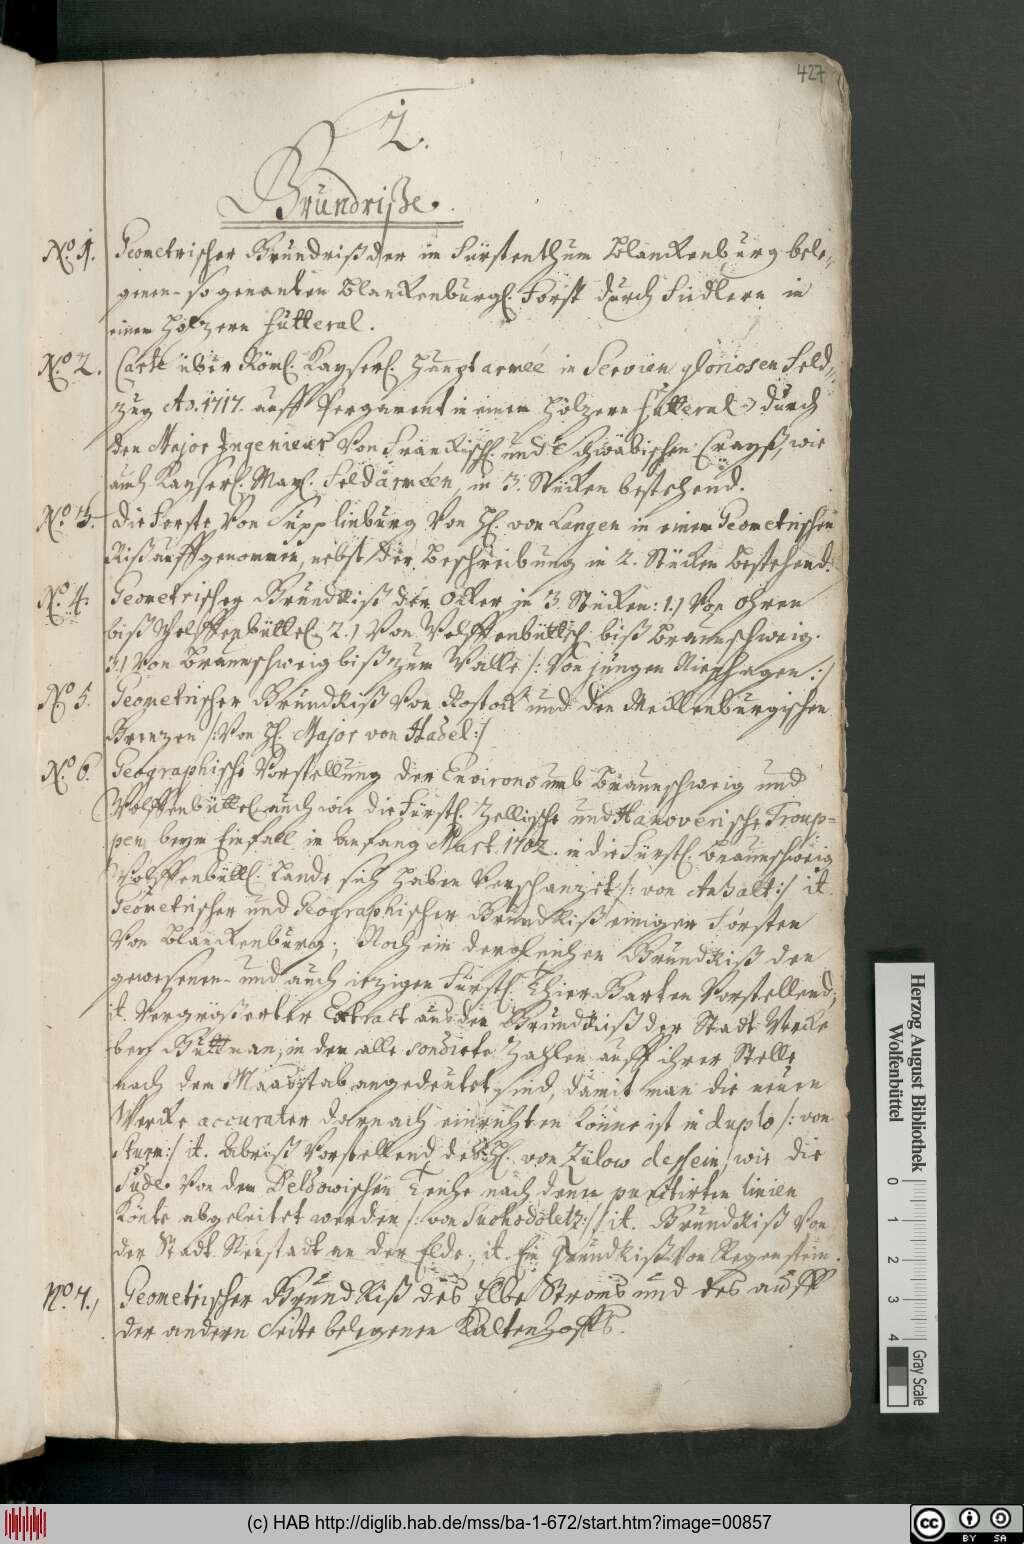 427
2.
Grundriße.
No. 1. Geometrischer Grundriß der im Fürstenthum Blanckenburg bele-
genen so genanten Blanckenburgl. Forst durch Fiedlern in
einem höltzern Futteral.
No. 2. Carte über Röml. Kayserl. Haupt armeé in Servien gloriosen Feld-
zug Ao. 1717. auff Pergament in einem höltzern Futteral durch
den Major Ingenieur von Fränckisch. und Schwäbischen Crayß, wie
auch Kayserl. May. Feldarméen, in 3. Stücken bestehend.
No. 3. die Forste von Supplinburg von H. von Langen in einem Geometrischen
Riß auffgenommen, nebst der Beschreibung in 2. Stücken bestehend.
No. 4. Geometrischer Grundriß der Ocker in 3. Stücken: 1.) Von Ohren
biß Wolffenbüttel 2.) Von Wolffenbüttel biß Braunschweig.
3.) Von Braunschweig biß zum Walle /: Von jungen Niephagen :/
No. 5. Geometrischer Grundriß von Rostock und den Mecklenburgischen
Grenzen /: Von H. Major von Habel :/
No. 6. Geographische Vorstellung der Environs umb Braunschweig und
Wolffenbüttel auch wie die Fürstl. Zellische und Hanoverische Troup-
pen, beym Einfall in Anfang Mart. 1702. in die Fürstl. Braunschweig
Wolffenbüttl. Lande sich haben verschanzet /: von Anhalt :/ it.
Geometrischer und Geographischer Grundriß einiger Forsten
Von Blanckenburg; Noch ein dergleichen Grundriß den
gewesenen und auch ietzigen Fürstl. Thier Garten Vorstellend;
it. Vergrößerter Extract aus den Grundriß der Stadt Wercke
bey Büttman, in dem alle sondirte Zahlen auff ihrer Stelle
nach dem Maasstab angedeutet sind, damit man die neuen
Wercke accurater darnach einrichten könne ist in duplo /: von
Sturm :/ it. Abriß Vorstellend des H. von Zülow dessein, wie die
Sude von dem Belsowischen Teiche nach denen punctirten linien
Könte abgeleitet werden /: von Suchodoletz :/ it. Grundriß Von
der Stadt Neustadt an der Elde; it. Ein Grundriß Von Regenstein.
No. 7. Geometrischer Grundriß des Elbe Stroms und des auff
der andern Seite belegenen Kaltenhoffs.
Herzog August Bibliothek
Wolfenbüttel
0 1 2 3 4
Gray Scale
(c) HAB http://diglib.hab.de/mss/ba-1-672/start.htm?image=00857
cc BY SA